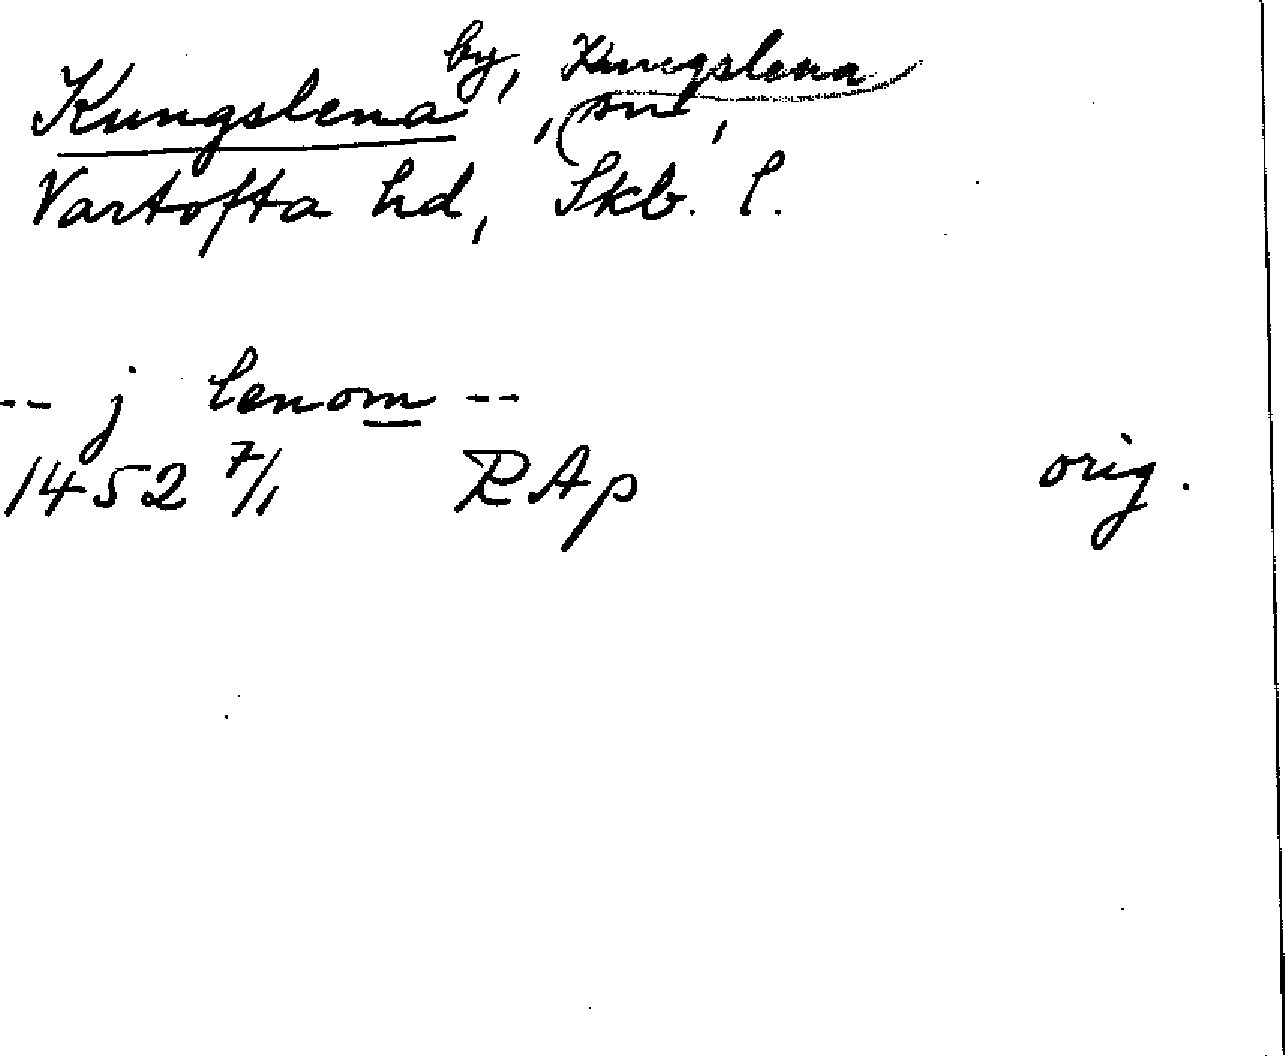 Kungslena by, Kungslena sn,
Vartofta hd, Skb. l.
-- j lenom --
1452 7/1 RAp orig.